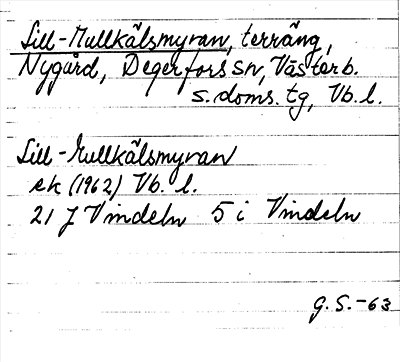 Lill-Mullkälsmyran, terräng,
Nygård, Degerfors sn, Västerb.
s. doms. tg, Vb. l.
Lill-Mullkälsmyran
ek (1962) Vb. l.
21 J Vindeln 5 i Vindeln
G. S. -63